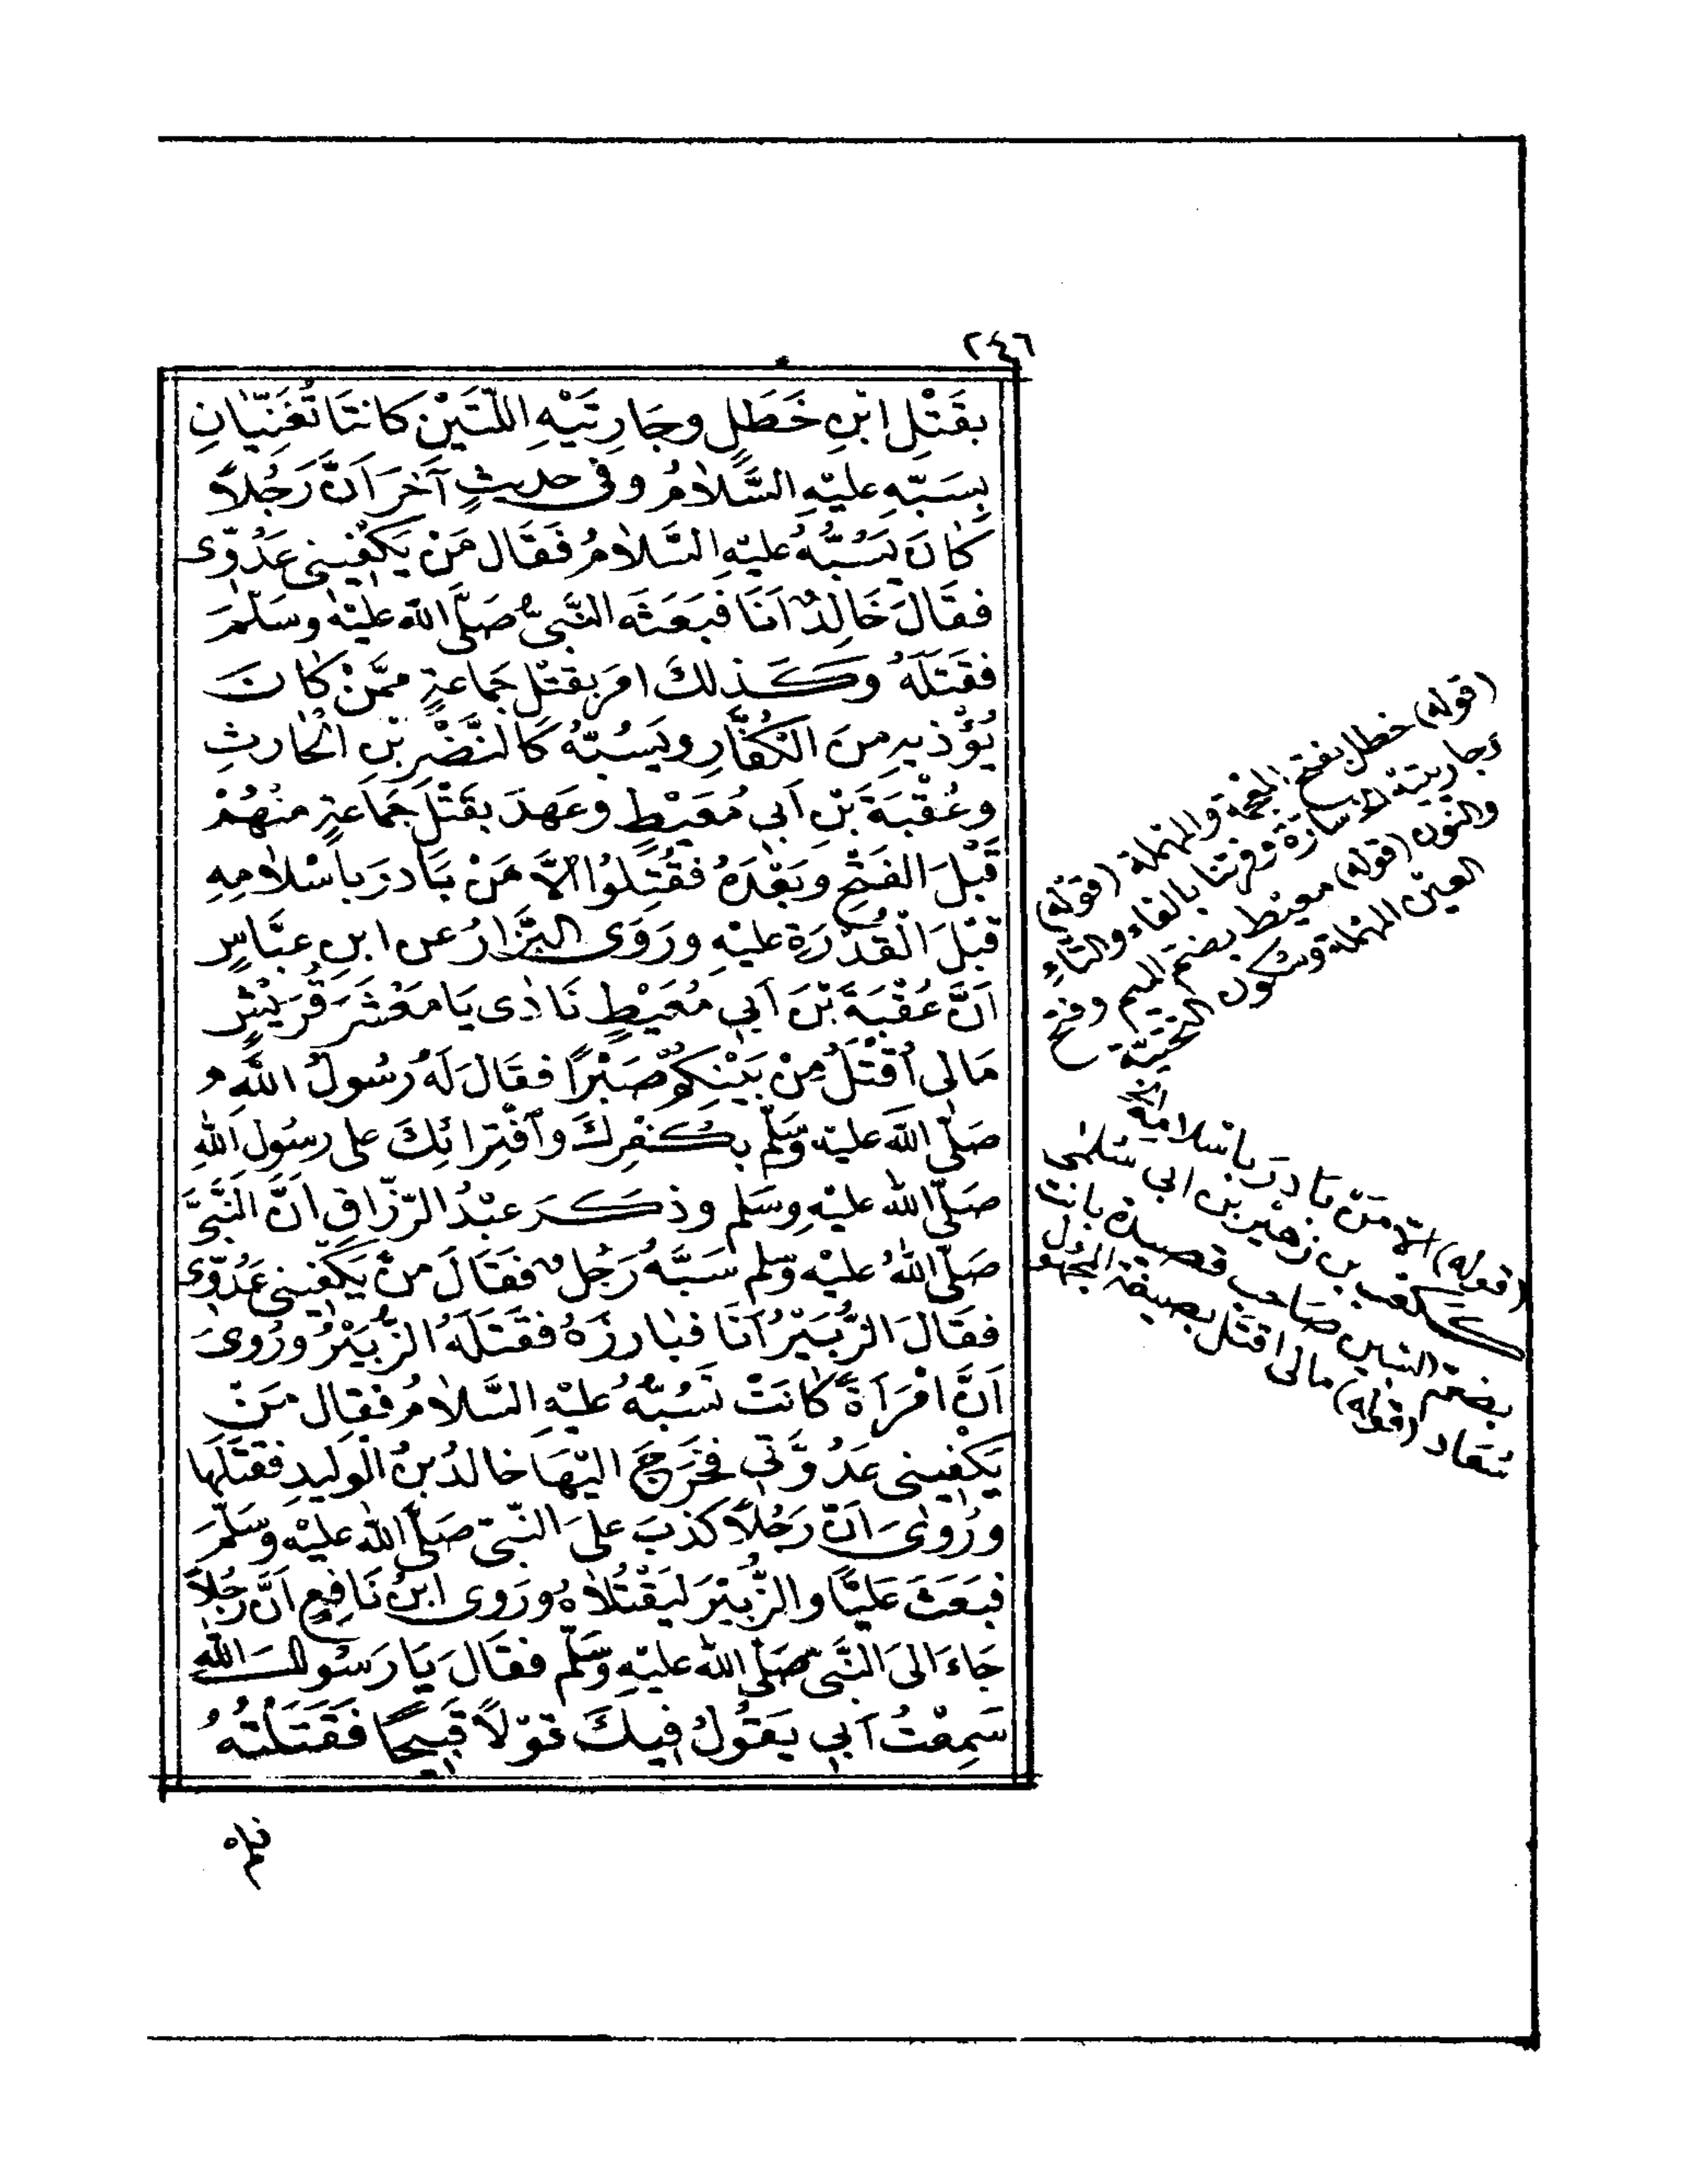 ٢٤٦
بِقَتْلِ ابْنِ خَطَلٍ وجَارِيَتَيْهِ اللَّتَيْنِ كَانَتَا تُغَنِّيَانِ
بِسَبِّهِ عليْهِ السَّلَامُ وفى حديثٍ آخَرَ اَنَّ رَجُلاً
كَانَ يَسُبُّهُ عليْهِ السَّلَامُ فَقَال مَنْ يَكْفِينى عَدُوِّى
فقَالَ خَالِدٌ اَنَا فبَعَثَه النَّبىُّ صَلَّى الله عليْه وسَلَّمَ
فقَتَلَهُ وكَذلكَ امَرَ بقتْل جَماعةٍ ممَّنْ كانَ
يُؤْذيهِ منَ الْكُفَّارِ ويَسُبُّهُ كَالنَّضْرِ بْنِ الْحَارثِ
وعُقْبَةَ بْنِ اَبى مُعَيْطٍ وعَهِدَ بقَتْلِ جَمَاعةٍ منْهُمْ
قَبْلَ الفَتْحِ وبَعْدَهُ فقُتِلُوا الاَّ مَنْ بَادَرَ باسْلامِهِ
قبْلَ الْقُدْرَةِ عليْهِ ورَوَى البَزَّارُ عن ابنِ عبَّاسٍ
اَنَّ عُقْبَةَ بْنَ اَبى مُعَيْطٍ نَادَى يَا مَعْشَرَ قُرَيْشٍ
مَالى اُقْتَلُ مِنْ بَيْنِكُمْ صَبْرًا فقَالَ لَهُ رَسُولُ اللهِ
صَلَّى اللهُ عليْه وسَلَّم بِكُفْرِكَ وافْتِرائِكَ على رسُولِ اللهِ
صَلَّى اللهُ عليْهِ وسَلم وذكَرَ عبْدُ الرَّزَّاقِ اَنَّ النَّبىَّ
صَلَّى اللهُ عليْه وسَلم سَبَّهُ رَجُلٌ فقَالَ منْ يَكْفِينى عَدُوِّى
فقَالَ الزُّبَيْرُ اَنَا فبَارزَهُ فقَتَلَهُ الزُّبَيْرُ ورُوِىَ
اَنَّ امْرَأةً كَانَتْ تَسُبُّهُ عليْهِ السَّلَامُ فقال مَنْ
يَكْفِينى عَدُوَّتى فخَرَجَ اليْهَا خالدُ بنُ الْوَليدِ فقتَلَها
ورُوِىَ اَنَّ رَجُلاً كذبَ علىَ النَّبىّ صَلَّى اللهُ عليْه وسَلَّمَ
فبَعَثَ عَليًّا والزُّبيْرَ ليَقْتُلَاهُ ورَوى ابنُ نَافِعٍ اَنَّ رَجُلاً
جَاءَ الىَ النَّبىّ صَلَّى الله عليْهِ وسَلّم فقَالَ يَا رَسُولَ اللهِ
سَمِعْتُ اَبى يَقُولُ فِيكَ قوْلاً قَبِيحًا فقَتَلْتُهُ
(قوله) خطل بفتح المعجمة والمهملة (قوله)
وجاريتيه سارة وفرتنا بالفاء والتاء
والنون (قوله) معيط بضم الميم وفتح
العين المهملة وسكون التحتيّة
(قوله) الا منْ بَادرَ باسلامه
كَكعب بن زهير بن ابى سُلمى
بضمّ السّين صاحب قصيدة بانت
سُعَاد (قوله) مالى اقتل بصيغة المجهول